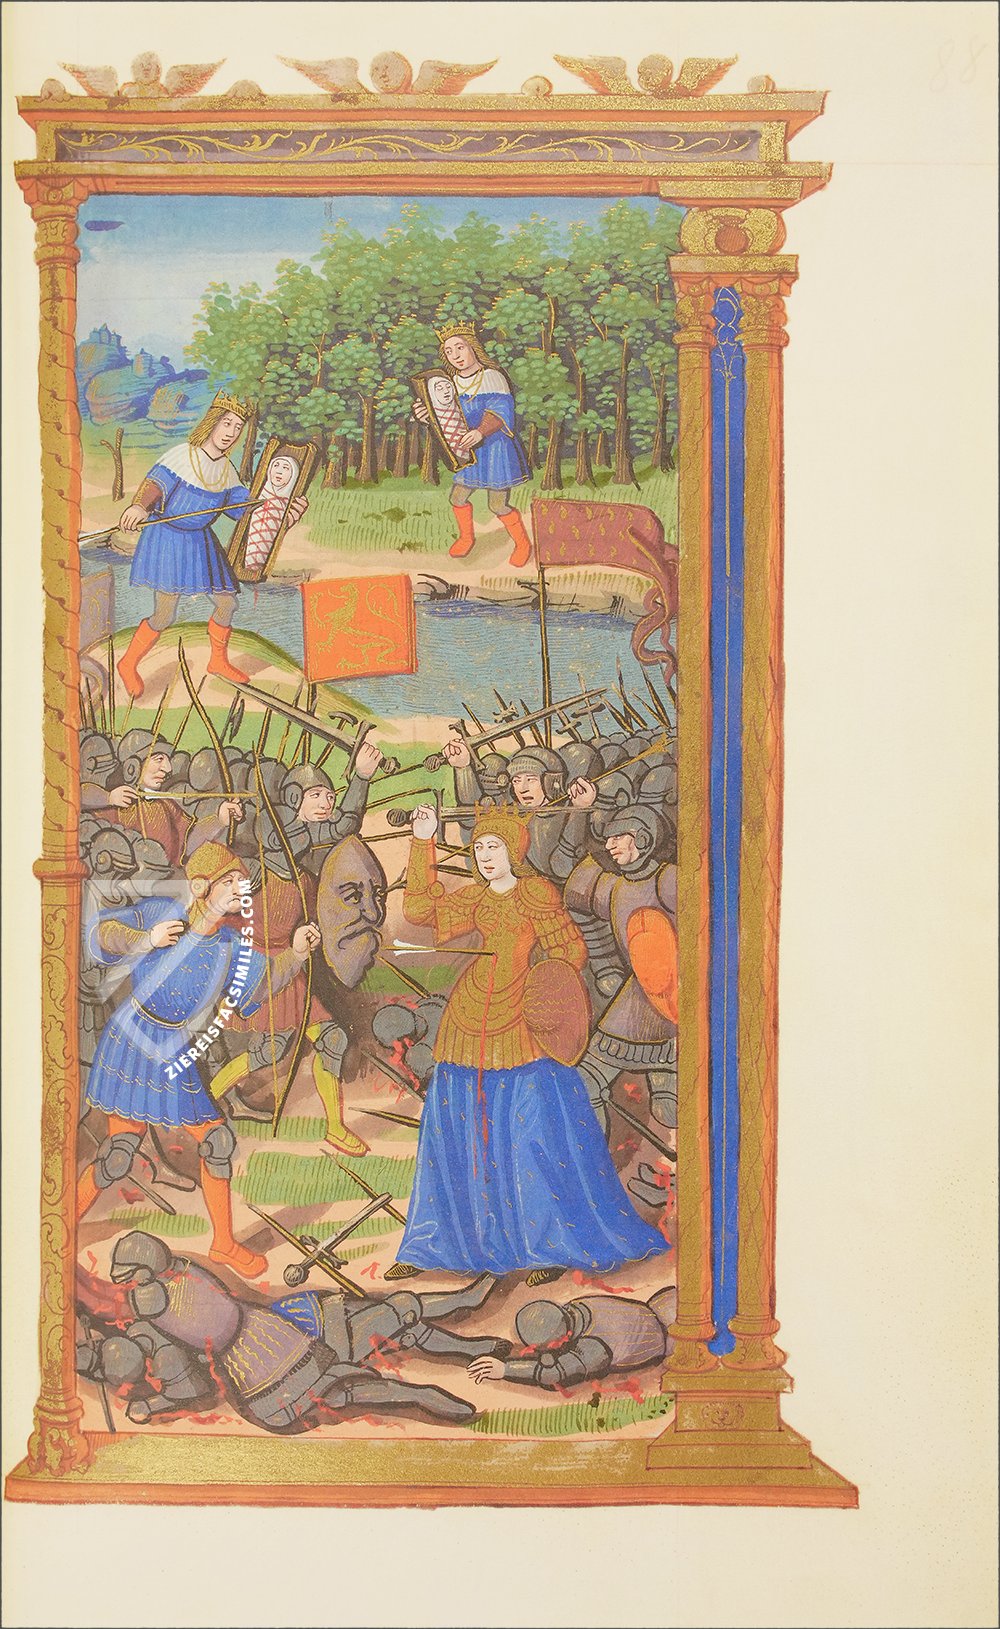 88
ZIEREISFACSIMILES.COM